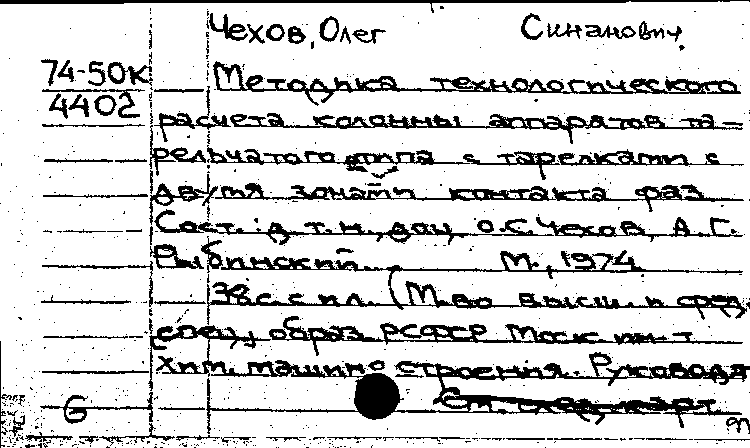 Чехов, Олег Синанович.
74-50К Методика технологического
4402 расчета колонны аппаратов та-
рельчатого типа с тарелками с
двумя зонами контакта фаз.
Сост.: д.т.н., доц. О.С. Чехов, А.Г.
Рыбинский. М., 1974.
38с. с ил. (М-во высш. и сред.
спец. образ. РСФСР Моск. ин-т
хим. машиностроения. Руководя
См. след. карт.